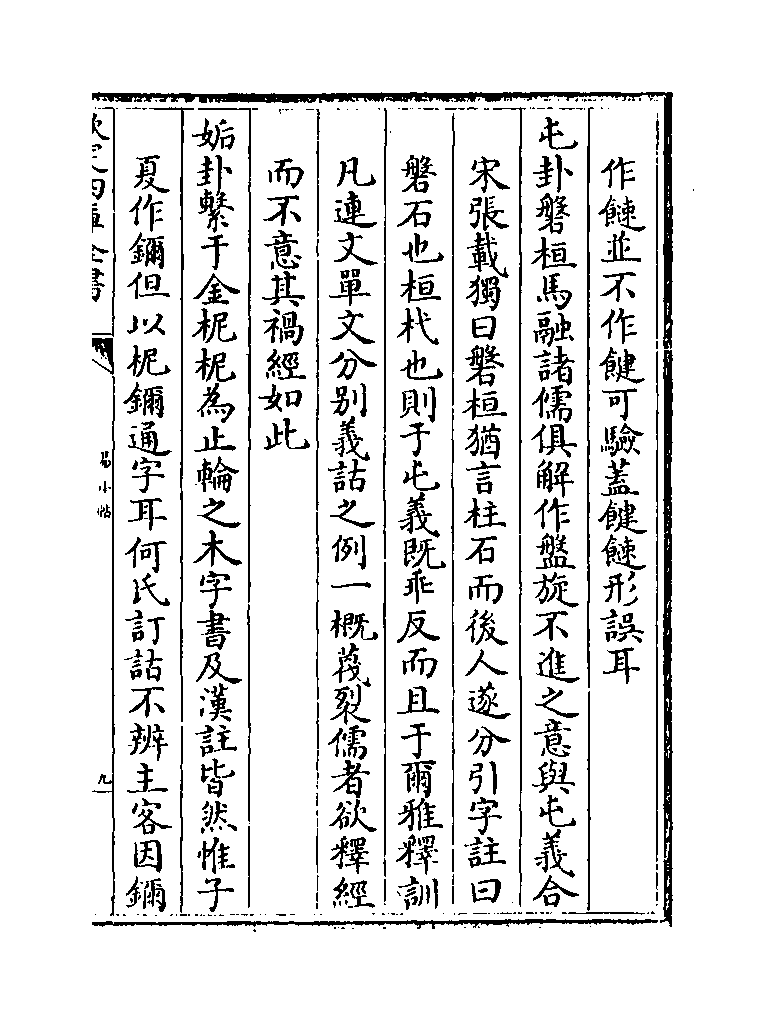 作餗並不作鍵可驗蓋鍵餗形誤耳
屯卦磐桓馬融諸儒俱解作盤旋不進之意與屯義合
宋張載獨曰磐桓猶言柱石而後人遂分引字註曰
磐石也桓杙也則于屯義既乖反而且于爾雅釋訓
凡連文單文分别義詁之例一概蔑裂儒者欲釋經
而不意其禍經如此
姤卦繫于金柅柅為止輪之木字書及漢註皆然惟子
夏作鑈但以柅鑈通字耳何氏訂詁不辨主客因鑈
欽定四庫全書
易小帖
九